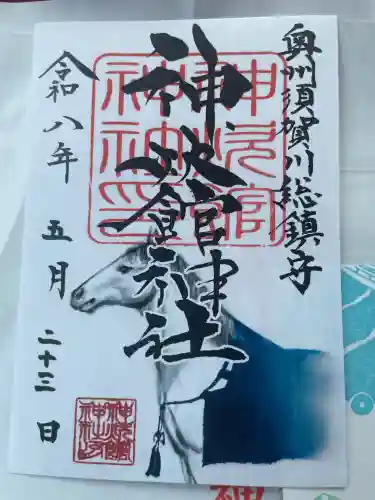 奥州須賀川総鎮守
神炊館神社
令和八年 五月 二十三日
神炊館
神社印
神